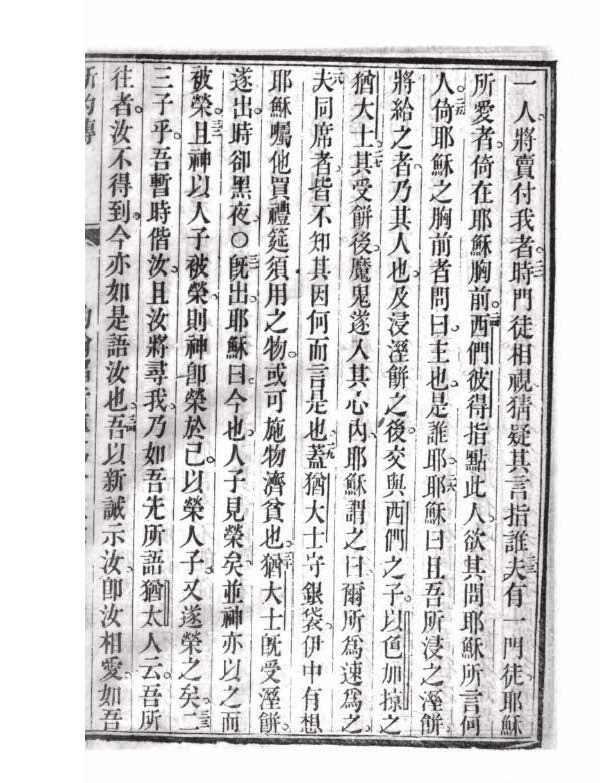 一人將賣付我者。時門徒相視猜疑其言指誰夫有一門徒耶穌
所愛者。倚在耶穌胸前。西們彼得指點此人欲其問耶穌所言何
人。倚耶穌之胸前者問曰主也是誰耶。耶穌曰且吾所浸之溼餅
將給之者乃其人也。及浸溼餅之後交與西們之子。以色加掠之
猶大士。其受餅後魔鬼遂入其心內。耶穌謂之曰爾所爲速爲之
夫同席者皆不知其因何而言是也。蓋猶大士守銀袋。伊中有想
耶穌囑他買禮筵須用之物。或可施物濟貧也。猶大士既受溼餅
遂出。時卻黑夜。○既出。耶穌曰今也人子見榮矣。並神亦以之而
被榮。且神以人子被榮。則神卽榮於己。以榮人子。又遂榮之矣。二
三子乎。吾暫時偕汝。且汝將尋我。乃如吾先所語猶太人云。吾所
往者。汝不得到。今亦如是語汝也。吾以新誡示汝。卽汝相愛。如吾